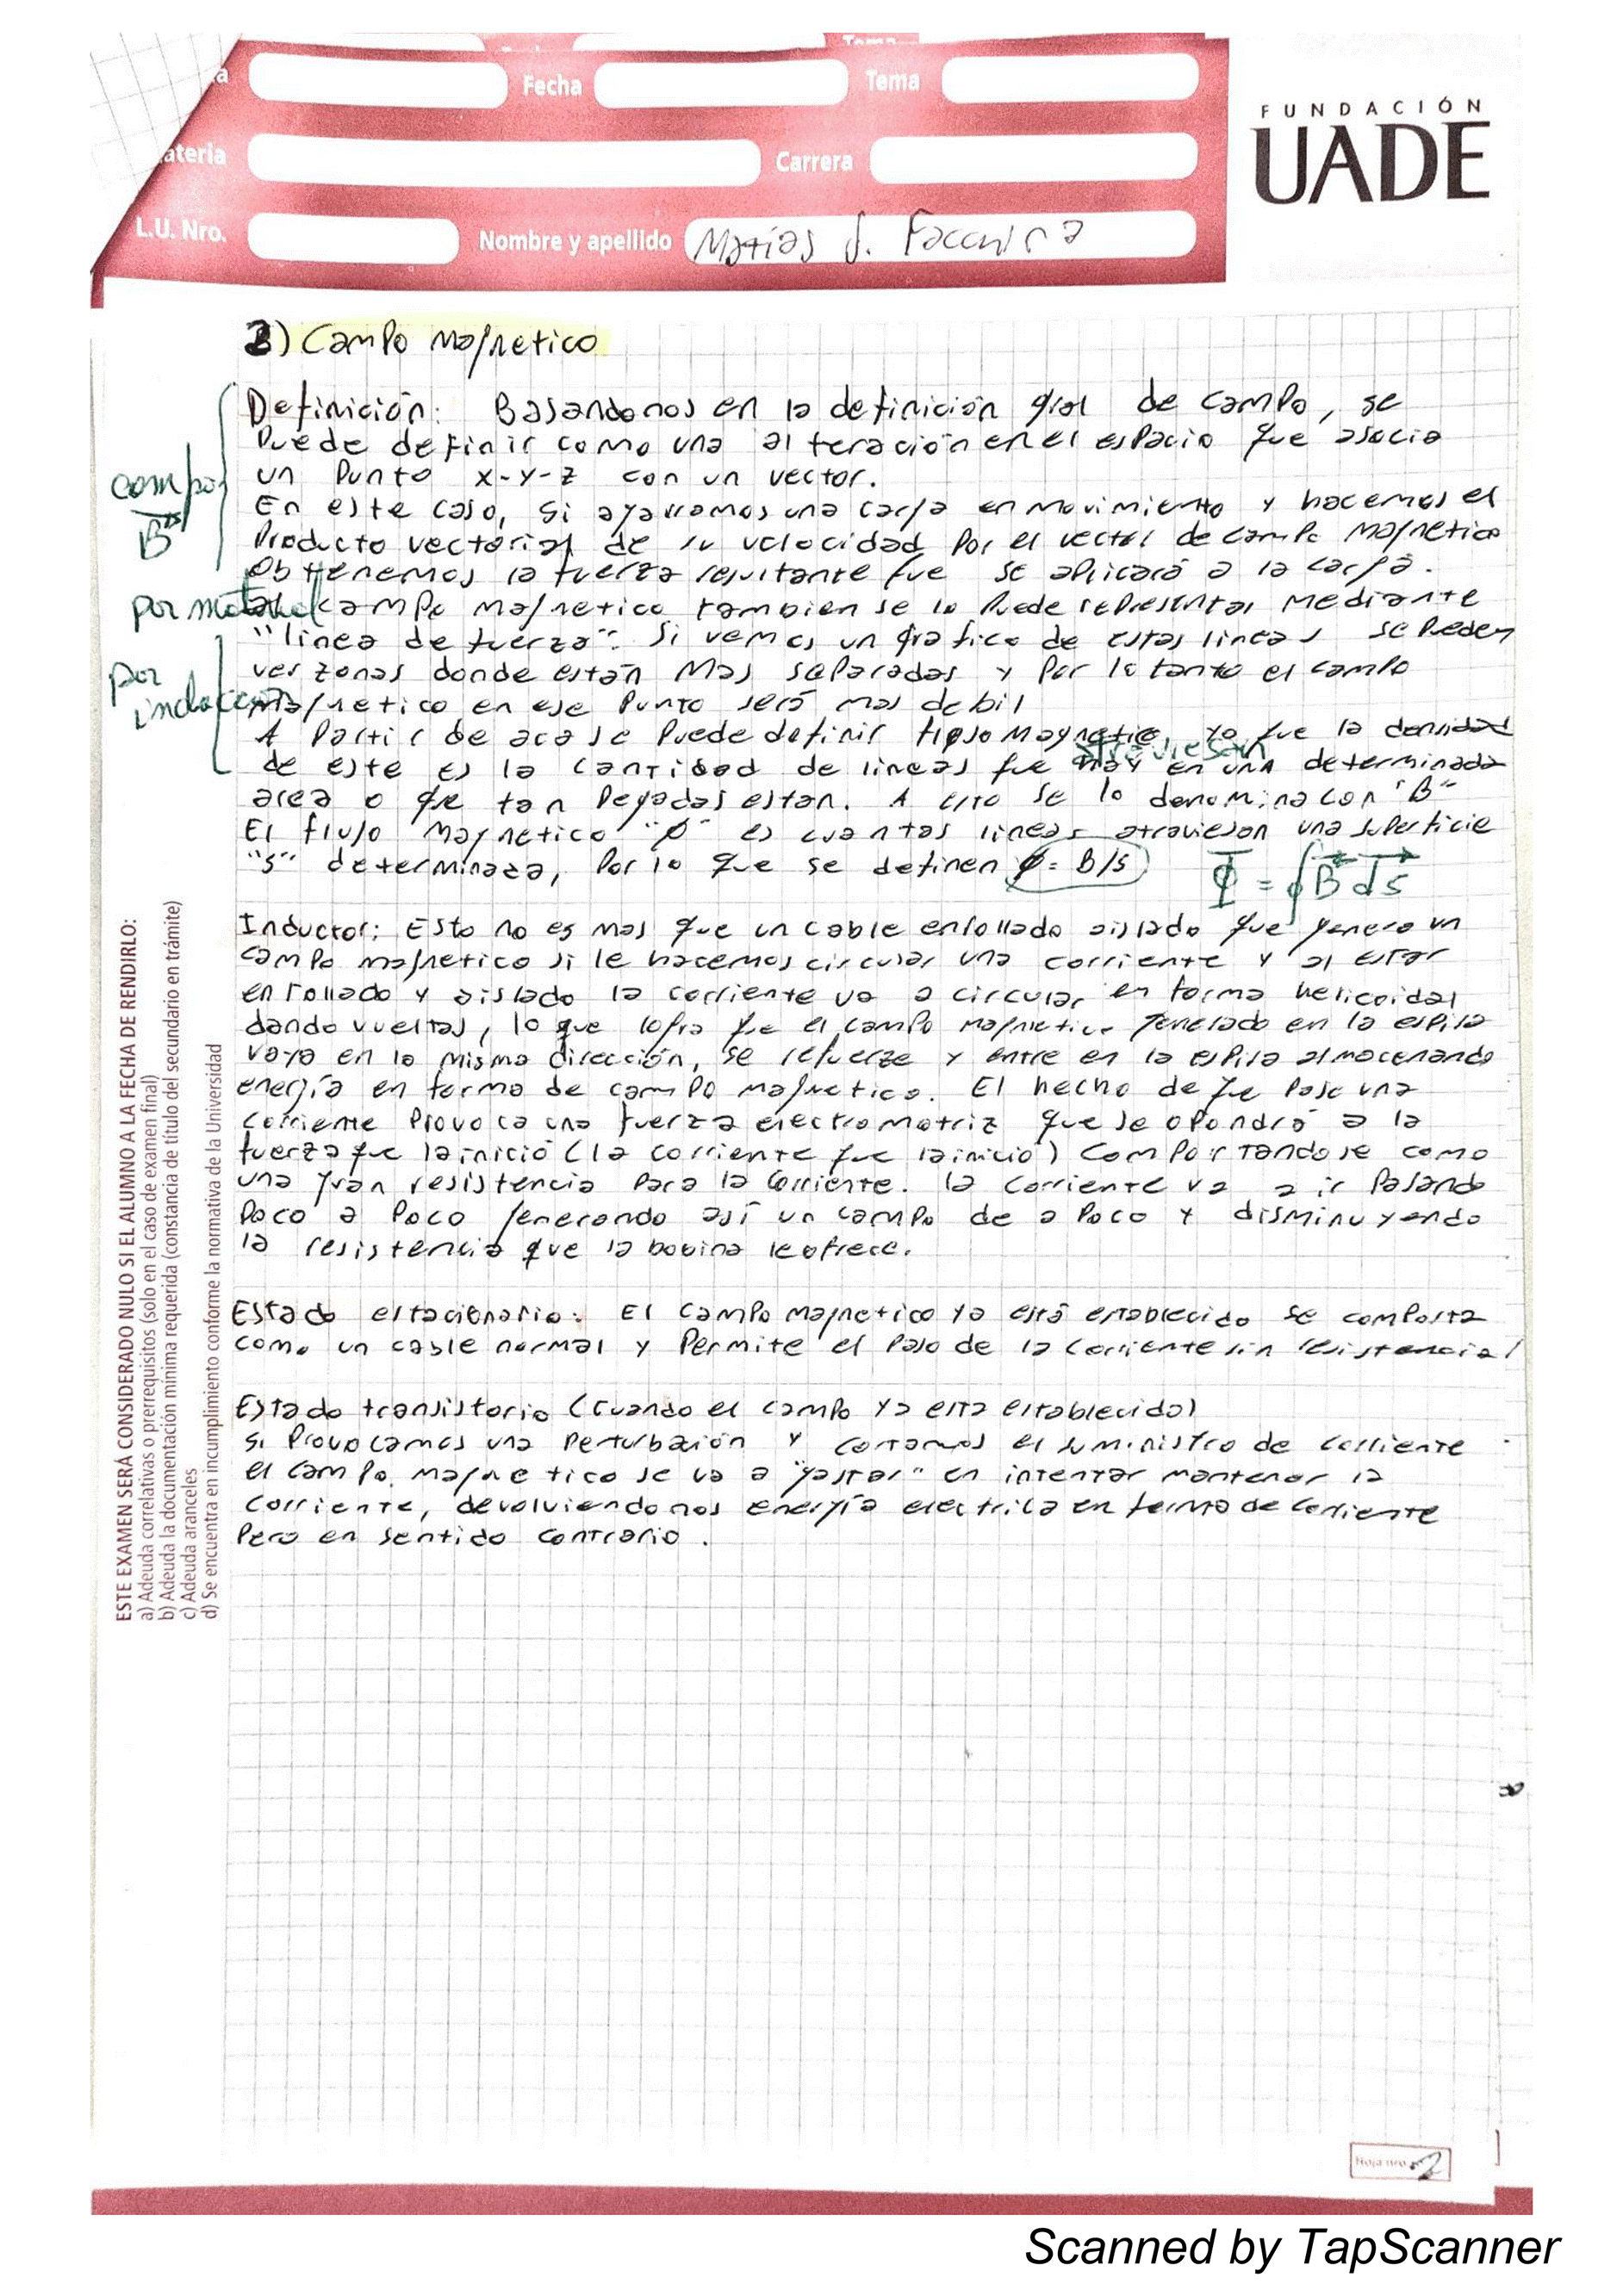 Fecha
Tema
ateria
Carrera
L.U. Nro.
Nombre y apellido Matías J.
FUNDACIÓN
UADE
2) Campo Magnetico
Definición: Basandonos en la definición gral de campo, se
Puede definir como una alteración en el espacio que asocia
un Punto x-y-z con un vector.
campo
B
En este caso, si agarramos una carga en movimiento y hacemos el
Producto vectorial de su velocidad Por el vector de campo Magnetico
obtenemos la fuerza resultante que se aplicará a la carga.
por material
al campo magnetico tambien se lo Puede representar mediante
"linea de fuerza". Si vemos un grafico de estas lineas se Pueden
por inducción
ver zonas donde están mas separadas y Por lo tanto el campo
magnetico en ese Punto será mas debil
A Partir de aca se Puede definir flujo magnetico, ya que la densidad
de este es la cantidad de lineas que hay en una determinada
atraviesan
area o que tan Pegadas estan. A esto se lo denomina con "B"
El flujo magnetico "Ø" es cuantas lineas atraviesan una superficie
"s" determinada, Por lo que se definen Ø = B/s
Φ = ∮ B ds
Inductor: Esto no es mas que un cable enrollado aislado que genera un
campo magnetico si le hacemos circular una corriente y al estar
enrollado y aislado la corriente va a circular en forma helicoidal
dando vueltas, lo que logra que el campo magnetico generado en la espira
vaya en la misma dirección, se refuerze y entre en la espira almacenando
energía en forma de campo magnetico. El hecho de que Pase una
corriente Provoca una fuerza electromotriz que se opondrá a la
fuerza que la inició (la corriente que la inicio) comportandose como
una gran resistencia Para la corriente. la corriente va a ir Pasando
Poco a Poco generando así un campo de a Poco y disminuyendo
la resistencia que la bobina le ofrece.
Estado estacionario: El campo magnetico ya está establecido se comporta
como un cable normal y Permite el Paso de la corriente sin resistencia
Estado transistorio (cuando el campo ya esta establecido)
si Provocamos una Perturbación y cortamos el suministro de corriente
el campo magnetico se va a "gastar" en intentar mantener la
corriente, devolviendonos energía electrica en forma de corriente
Pero en sentido contrario.
ESTE EXAMEN SERÁ CONSIDERADO NULO SI EL ALUMNO A LA FECHA DE RENDIRLO:
a) Adeuda correlativas o prerrequisitos (solo en el caso de examen final)
b) Adeuda la documentación mínima requerida (constancia de título del secundario en trámite)
c) Adeuda aranceles
d) Se encuentra en incumplimiento conforme la normativa de la Universidad
Hoja nro. 2
Scanned by TapScanner